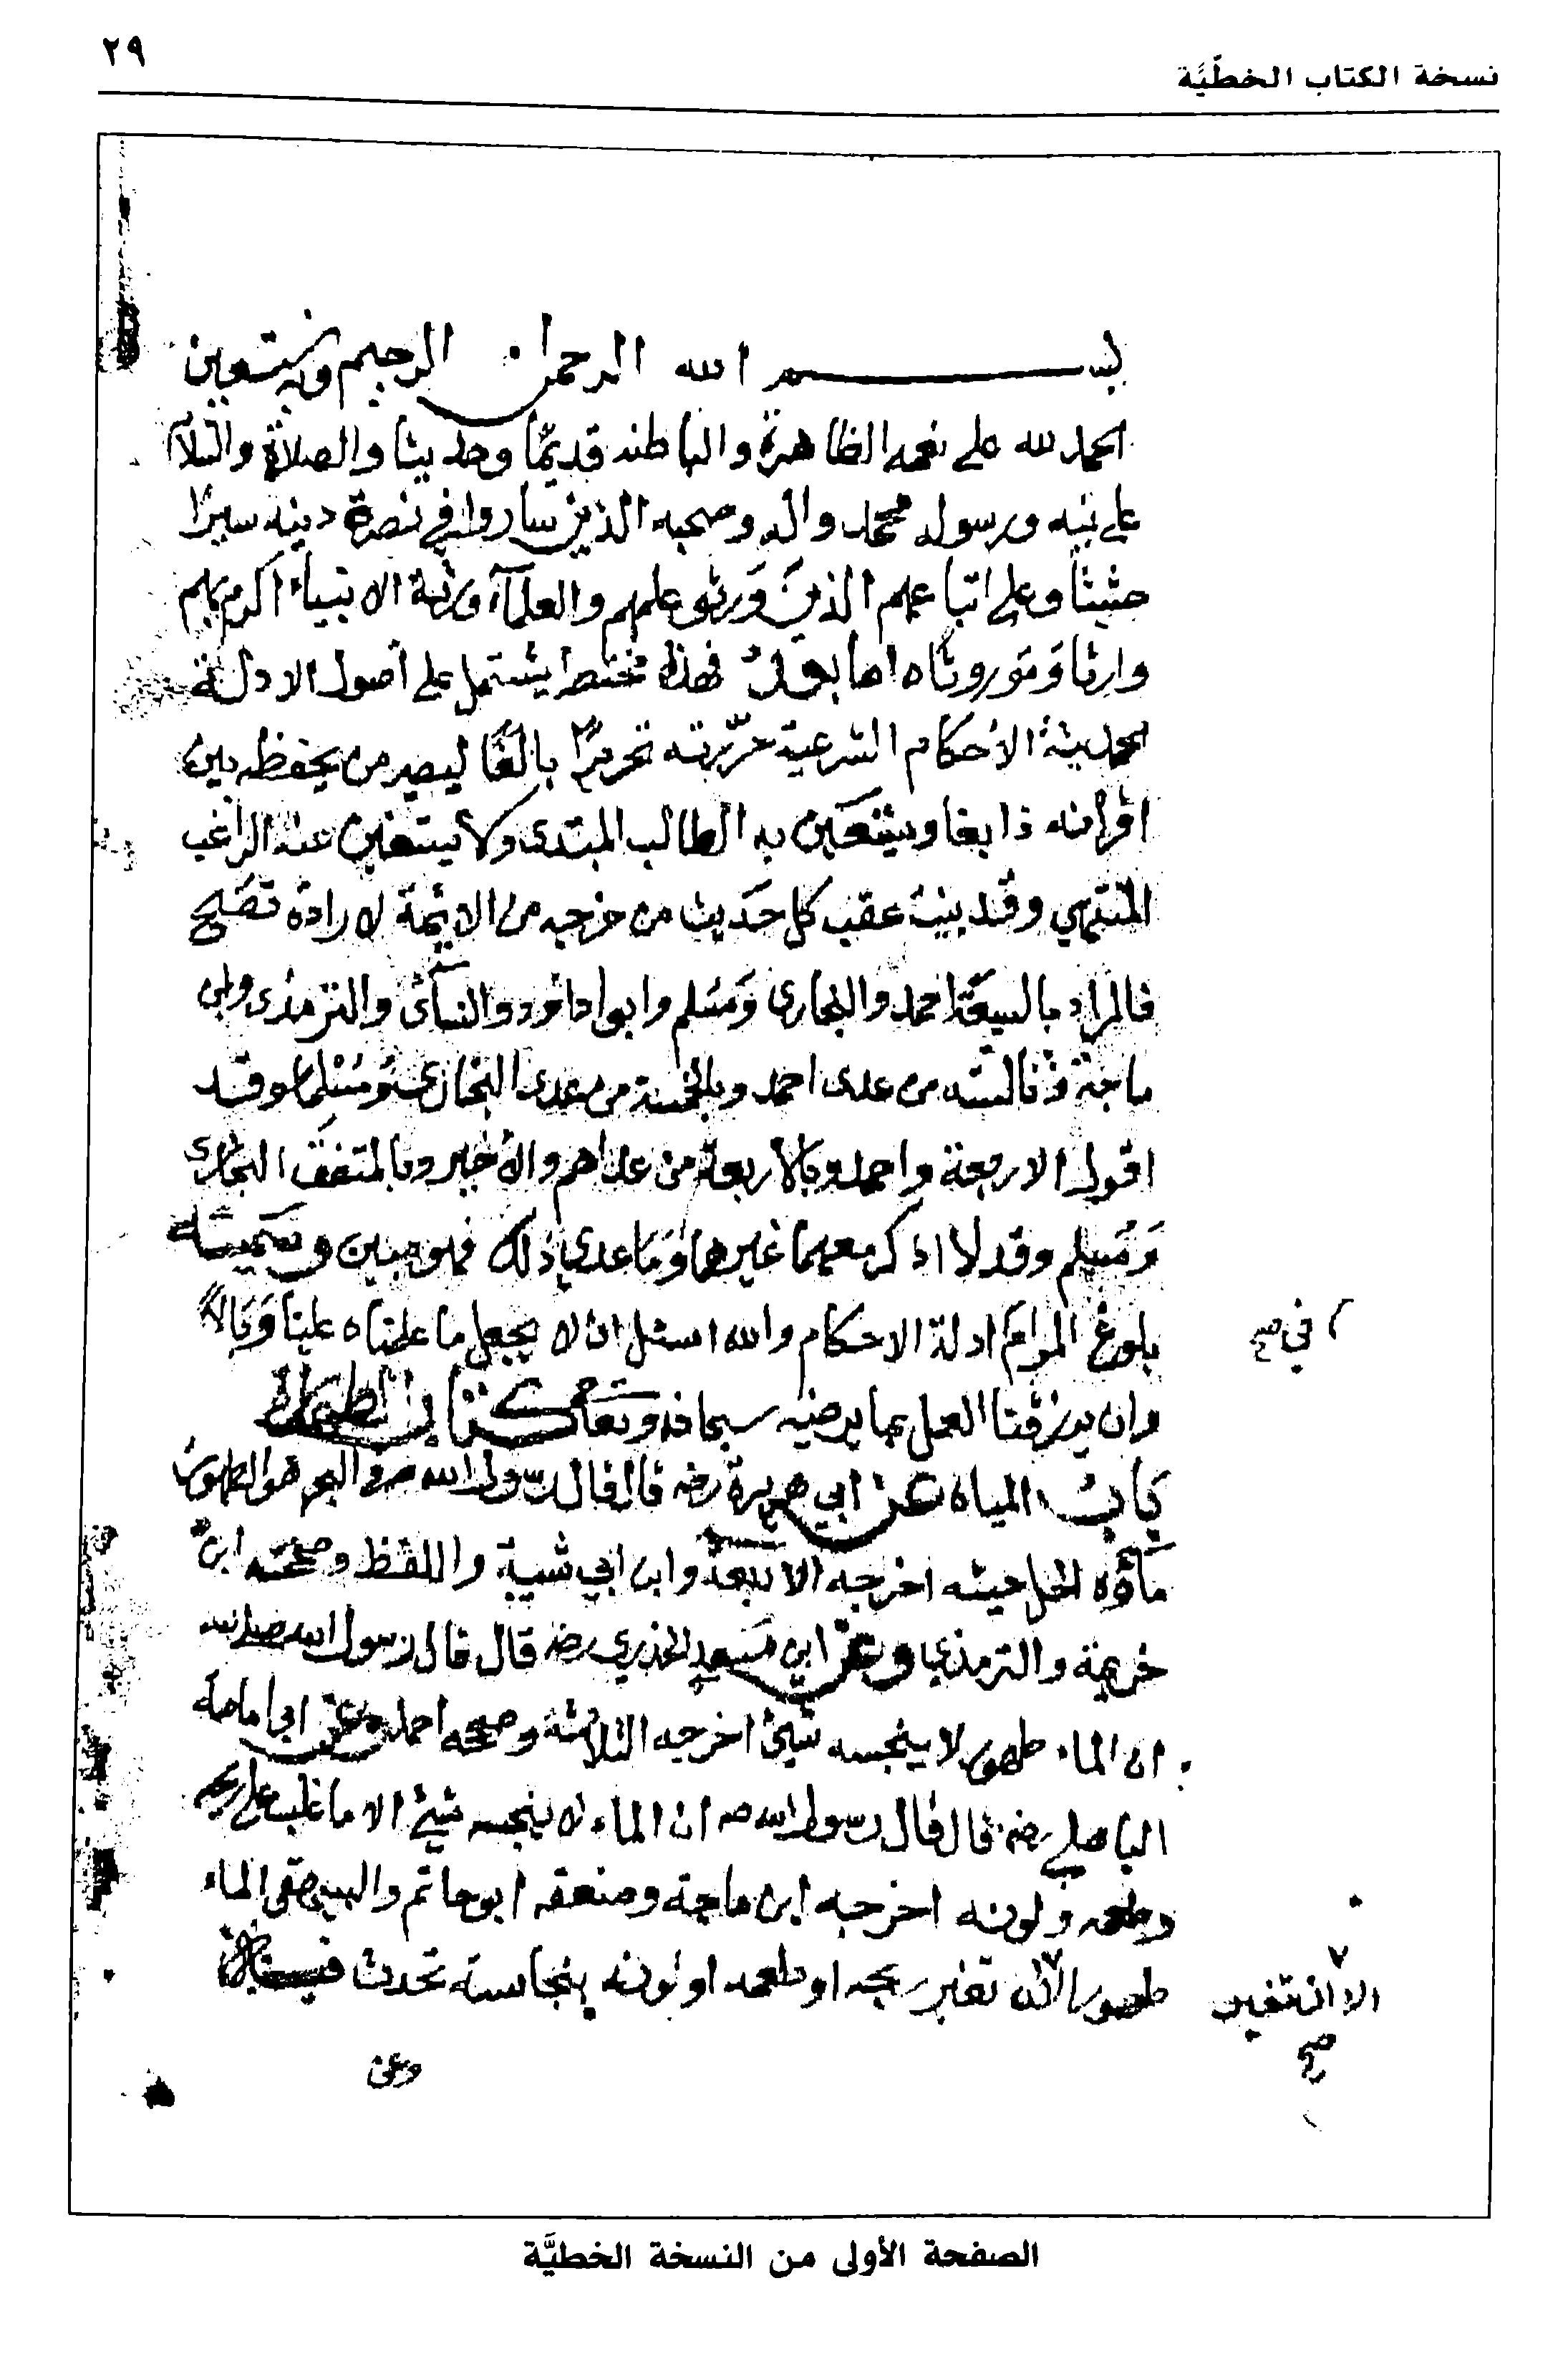 نسخة الكتاب الخطّيَّة
٢٩
بسم الله الرحمن الرحيم وبه نستعين
الحمد لله على نعمه الظاهرة والباطنه قديمًا وحديثا والصلاة والسلام
على نبيه ورسوله محمد واله وصحبه الذين ساروا في نصرة دينه سيرًا
حثيثًا وعلى اتباعهم الذين وَرثو علمهم والعلمآء ورثة الانبياء اكرم بهم
وارثا وَمَوروثا اما بعد فهذا مختصر يشتمل على أصول الادلة
الحديثة الأحكام الشرعية حرّرته تحريرًا بالغًا ليصير من يحفظه بين
اقرانه نابغا ويستعين به الطالب المبتدى ولا يستغنى عنه الراغب
المنتهي وقد بينت عقب كل حَديث من خرجه من الائمة لارادة نصح
فالمراد بالسبعَة احمد والبخارى وَمُسلم وابوا داود والنسآئى والترمذى وابن
ماجة وبالسته من عدى احمد وبالخمسة من عدى البخارى وَمُسْلما وقد
اقول الاربعة واحمد وبالاربعة من عداهم والأخير وبالمتفق البخارى
وَمُسلم وقد لا اذكر معهما غيرهما وَمَا عدى ذلك فهو مبين وسَميته
بلوغ المرام ادلة الاحكام والله اسئل ان لا يجعل ما علمناه علينا وَبَالًا
في صح
وان يرزقنا العمل بما يرضيه سبحانه وتعالى كتاب الطهارة
باب المياه عن ابي هريرة رضه قال قال رسول الله صـ في البحر هو الطهور
مآؤه الحل ميته اخرجه الاربعة وابن ابي شيبة واللفظ وصححه ابن
خزيمة والترمذي وعن ابي سَعيد الخدري رضه قال قال رسول الله صلى الله
ان الماء طهور لا ينجسه شيئ اخرجه الثلاثة وصححه احمد وعن ابي امامة
الباهلي رضه قال قال رسول الله صـ ان الماء لا ينجسه شيئ الا ما غلب على ريحه
وطعمه ولونه اخرجه ابن ماجة وضعفه ابو حاتم والبيهقى الماء
طهور الا ان تغير ريحه او طعمه او لونه بنجاسة تحدث فيه
الا ان تغير
صح
وعن
الصفحة الأولى من النسخة الخطيَّة